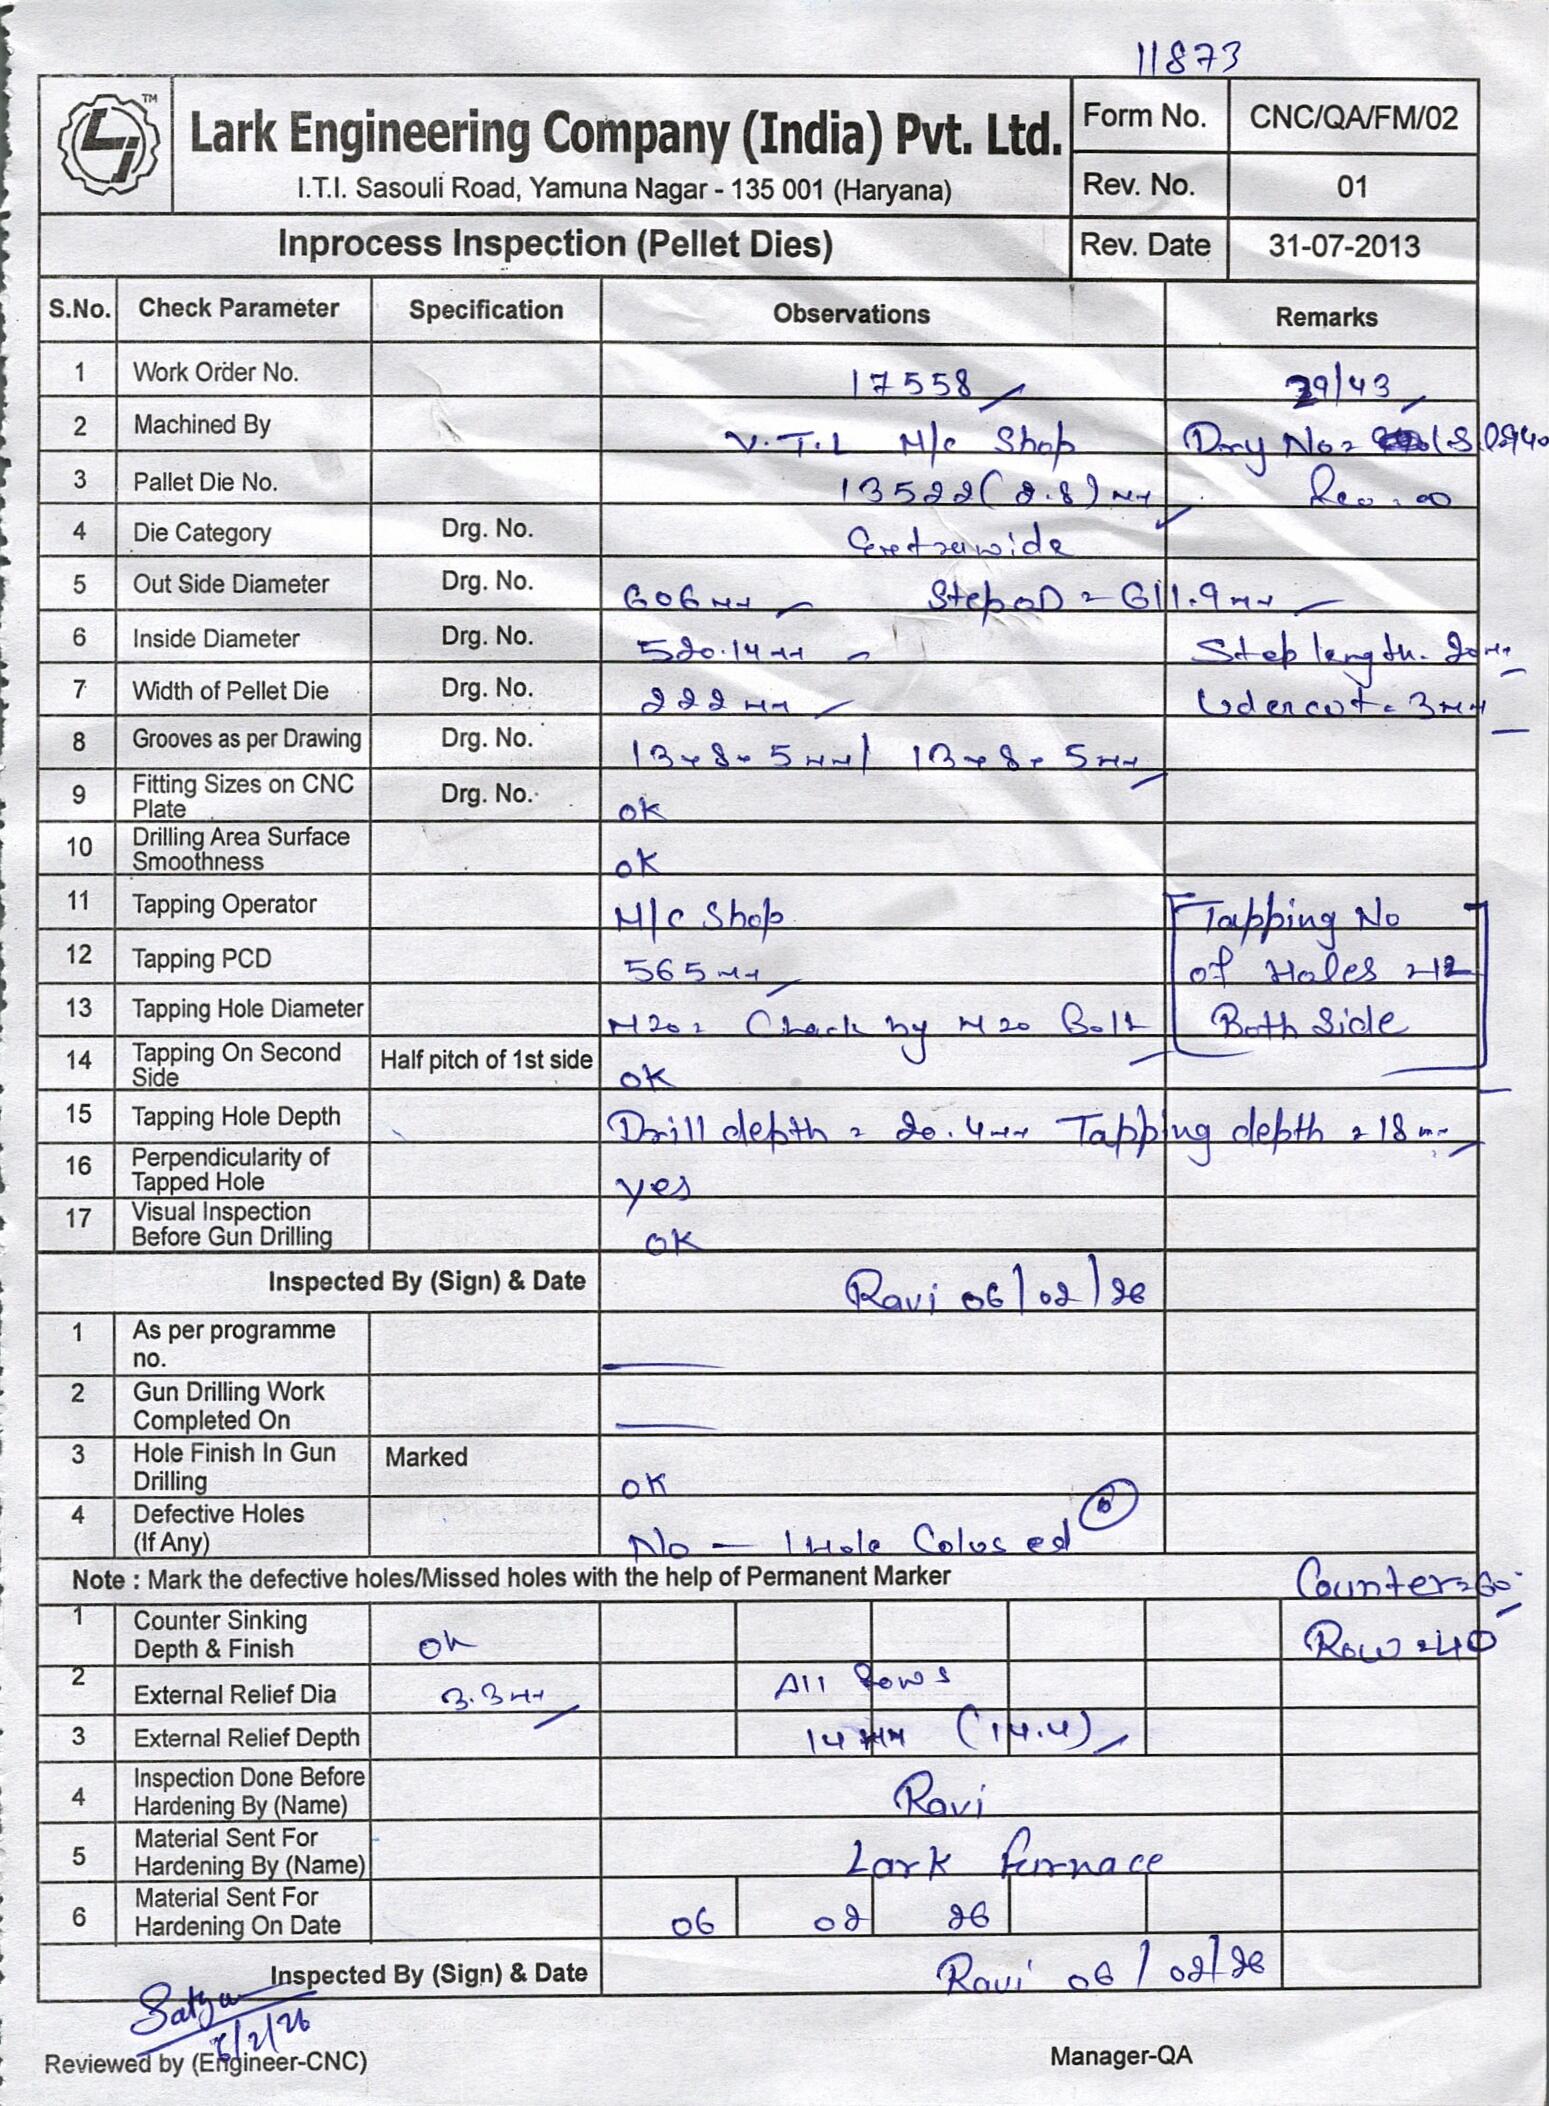 11873
Lark Engineering Company (India) Pvt. Ltd.
TM
I.T.I. Sasouli Road, Yamuna Nagar - 135 001 (Haryana)
Form No. CNC/QA/FM/02
Rev. No. 01
Inprocess Inspection (Pellet Dies)
Rev. Date 31-07-2013
S.No. Check Parameter Specification Observations Remarks
1 Work Order No. 17558 29/43
2 Machined By V.T.L M/c Shop Drg No=
3 Pallet Die No. 13522(2.8)mm Rev.=00
4 Die Category Drg. No.
5 Out Side Diameter Drg. No. 606mm Step OD = 611.9mm
6 Inside Diameter Drg. No. 520.14mm Step length. 20mm
7 Width of Pellet Die Drg. No. 222mm Udercut = 3mm
8 Grooves as per Drawing Drg. No. 13x8x5mm/ 13x8x5mm
9 Fitting Sizes on CNC Plate Drg. No. ok
10 Drilling Area Surface Smoothness ok
11 Tapping Operator M/c Shop Tapping No
12 Tapping PCD 565mm of Holes =12
13 Tapping Hole Diameter M20= Check by M20 Bolt Both Side
14 Tapping On Second Side Half pitch of 1st side ok
15 Tapping Hole Depth Drill depth = 20.4mm Tapping depth =18mm
16 Perpendicularity of Tapped Hole yes
17 Visual Inspection Before Gun Drilling ok
Inspected By (Sign) & Date Ravi 06/02/26
1 As per programme no.
2 Gun Drilling Work Completed On
3 Hole Finish In Gun Drilling Marked ok
4 Defective Holes (If Any) No – 1 Hole Colosed
Note : Mark the defective holes/Missed holes with the help of Permanent Marker Counter=60°
1 Counter Sinking Depth & Finish ok Row=40
2 External Relief Dia 3.3mm All Rows
3 External Relief Depth 14mm (14.4)
4 Inspection Done Before Hardening By (Name) Ravi
5 Material Sent For Hardening By (Name) Lark furnace
6 Material Sent For Hardening On Date 06 02 26
Inspected By (Sign) & Date Ravi 06/02/26
Satya
6/2/26
Reviewed by (Engineer-CNC) Manager-QA